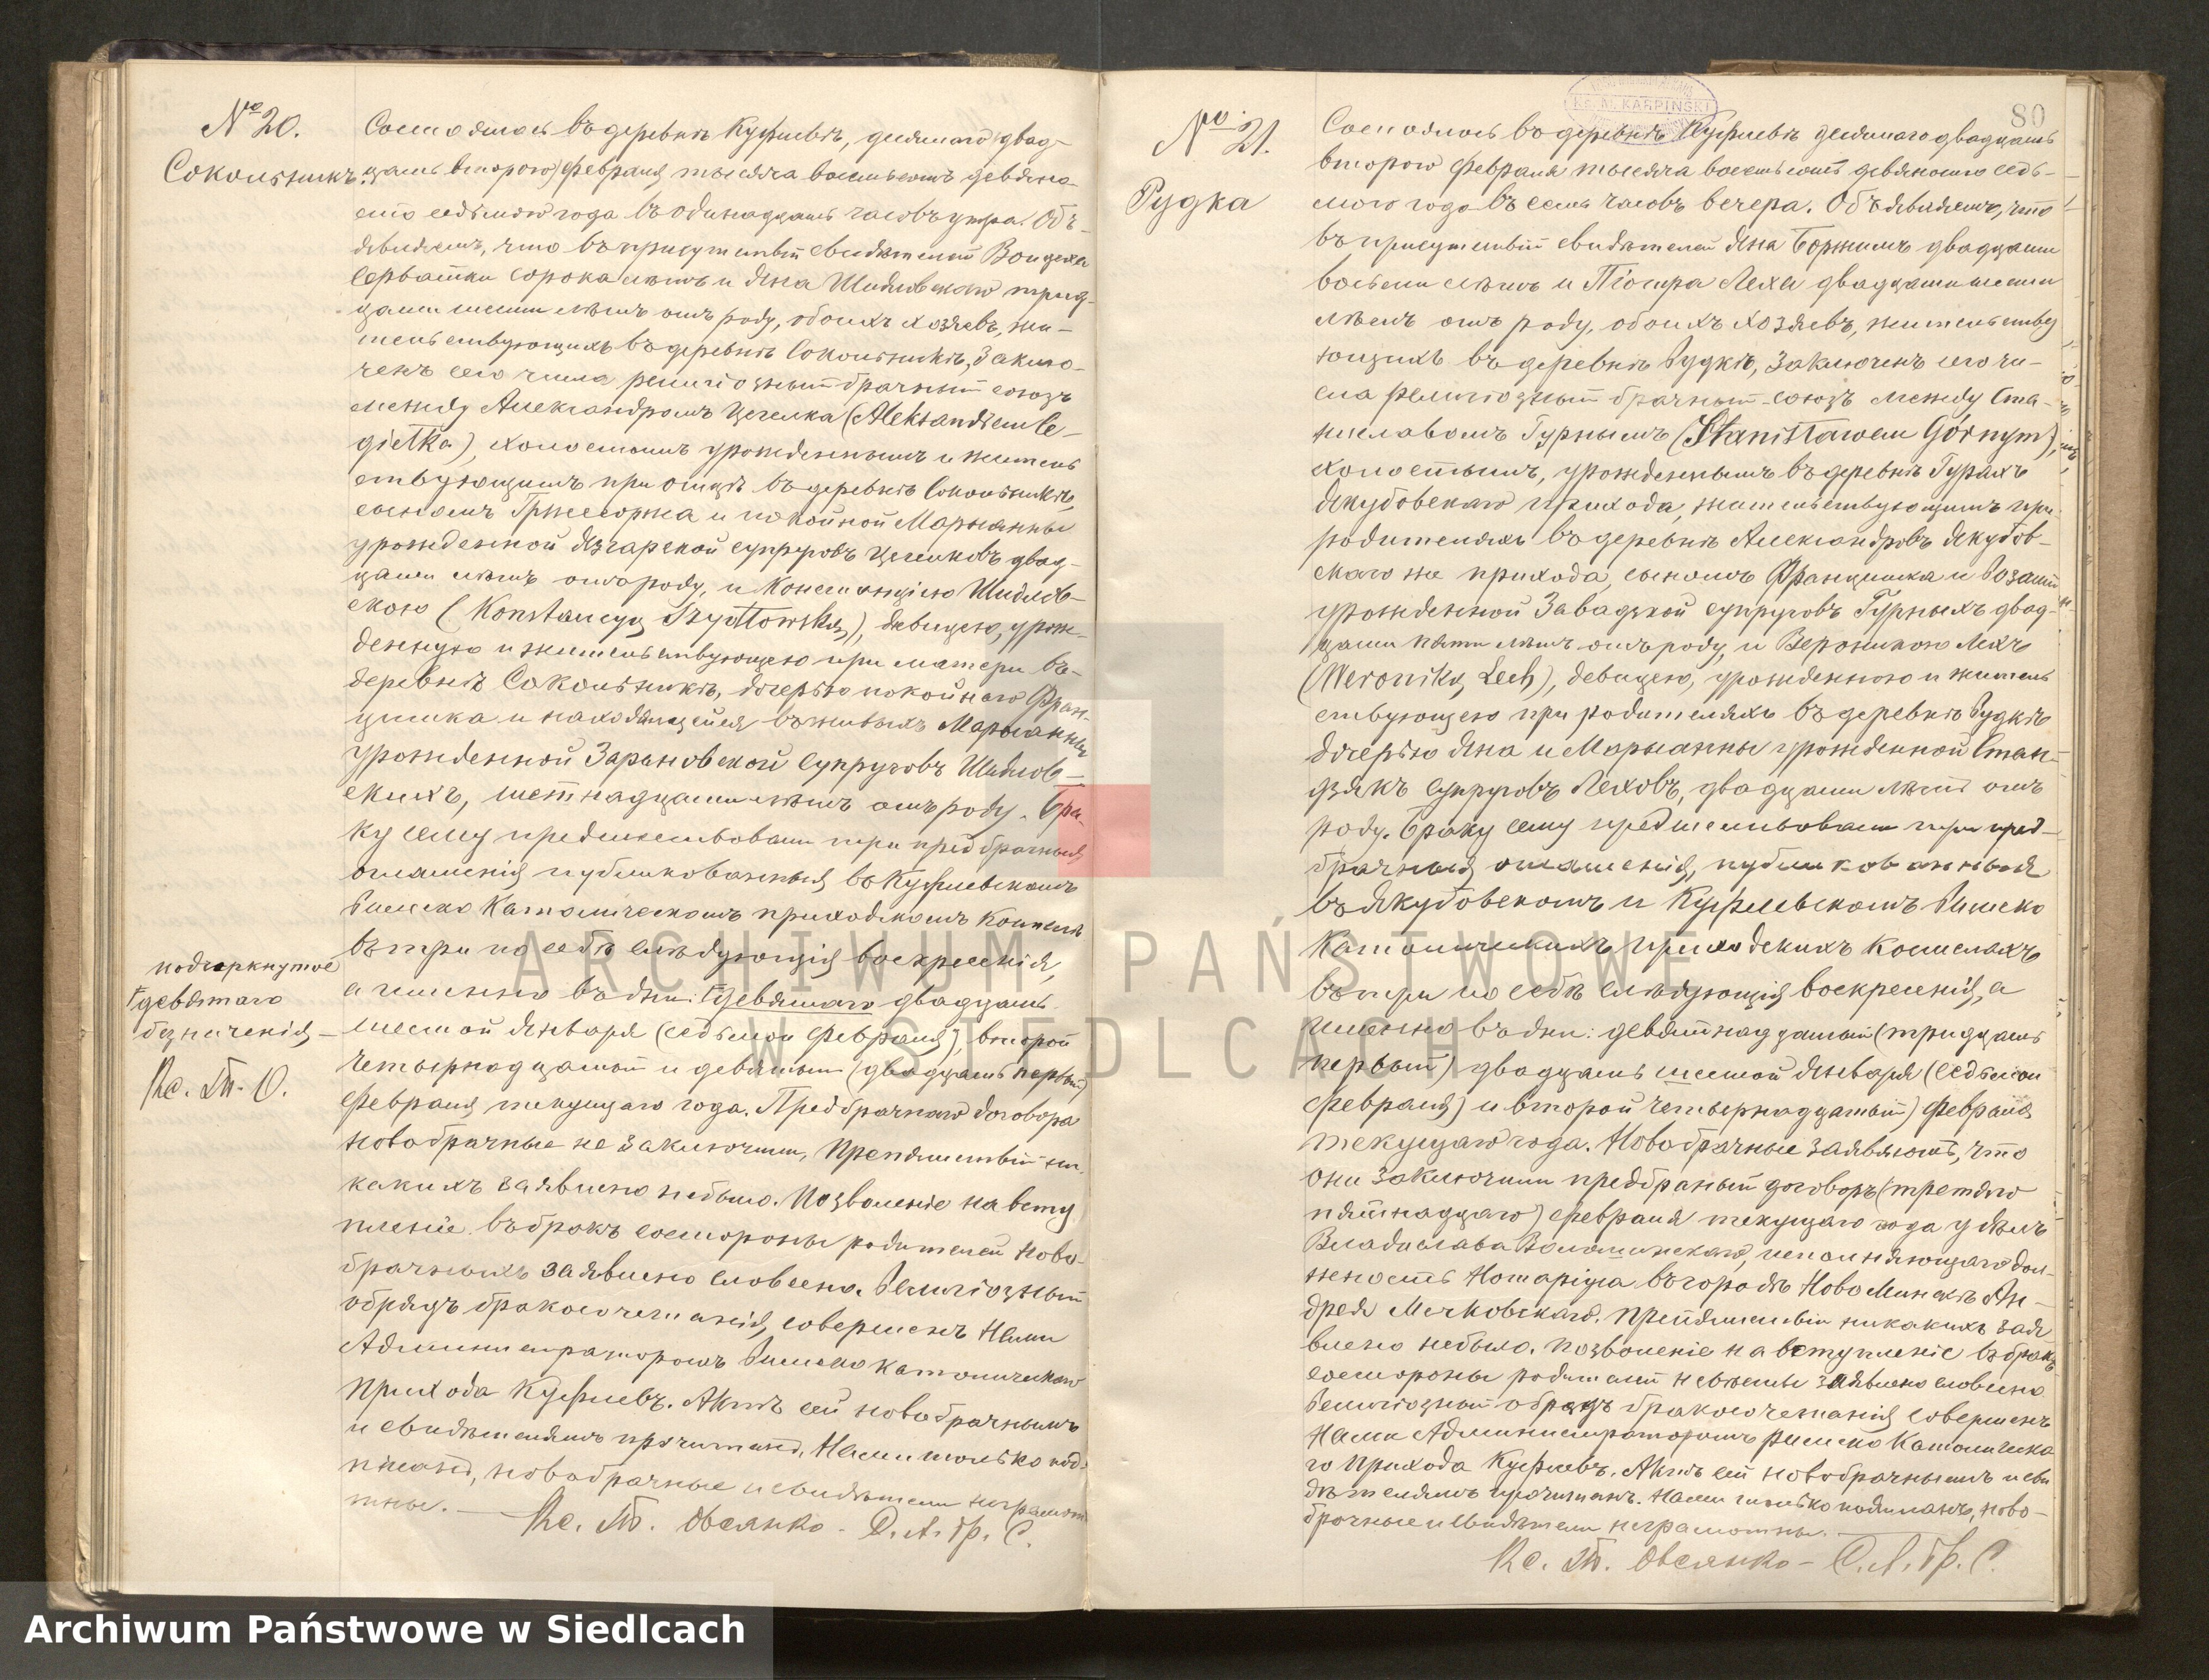 № 20.
Сокольникъ.
Состоялось въ деревнѣ Куфлевѣ, десятаго (двад-
цать второго) февраля тысяча восемьсотъ девяно-
сто седьмого года въ одинадцать часовъ утра. Объ-
являемъ, что въ присутствіи свидѣтелей Войцеха
Серватки сорока лѣтъ и Яна Шидловскаго трид-
цати шести лѣтъ отъ роду, обоихъ хозяевъ, жи-
тельствующихъ въ деревнѣ Сокольникѣ, заклю-
ченъ сего числа религіозный брачный союзъ
между Александромъ Цегелка (Aleksandrem Ce-
giełka), холостымъ урожденнымъ и житель
ствующимъ при отцѣ въ деревнѣ Сокольникѣ,
сыномъ Гржегоржа и покойной Марыанны
урожденной Язгарской супруговъ Цегелковъ двад-
цати лѣтъ отъ роду, и Констанціею Шидлов-
скою (Konstancyą Szydłowską), дѣвицею, урож-
денную и жительствующею при матери въ
деревнѣ Сокольникѣ, дочерью покойнаго Фран-
цишка и находящейся въ живыхъ Марыанны
урожденной Зарановской супруговъ Шидлов-
скихъ, шестнадцати лѣтъ отъ роду. Бра-
ку сему предшествовали три предбрачныя
оглашенія публикованныя въ Куфлевскомъ
Римско Католическомъ приходскомъ костелѣ
въ три по себѣ слѣдующія воскресенія,
а именно въ дни: девятаго двадцать
шестой Января (седьмой февраля), второй
четырнадцатый и девятый (двадцать первый)
февраля текущаго года. Предбрачнаго договора
новобрачные не заключили, Препятствій ни-
какихъ заявлено небыло. Позволеніе на всту
пленіе въ бракъ состороны родителей ново-
брачныхъ заявлено словесно. Религіозный
обрядъ бракосочетанія, совершенъ Нами
Администраторомъ Римско Католическаго
Прихода Куфлевъ. Актъ сей новобрачнымъ
и свидѣтелямъ прочитанъ, Нами только под-
писанъ, новобрачные и свидѣтели неграмот
тные.
Кс. Т. Овсянко - С. А. Гр. С.
подчеркнутое
девятаго
безначенія
Кс. Т. О.
80
Ks. M. KARPIŃSKI
№ 21.
Рудка
Состоялось въ деревнѣ Куфлевѣ десятаго двадцать
второго февраля тысяча восемьсотъ девяносто седь-
мого года въ семь часовъ вечера. Объявляемъ, что
въ присутствіи свидѣтелей Яна Боржимъ двадцати
восьми лѣтъ и Піотра Леха двадцати шести
лѣтъ отъ роду, обоихъ хозяевъ, жительству
ющихъ въ деревнѣ Рудкѣ, заключенъ сего чи-
сла религіозный брачный союзъ между Ста-
ниславомъ Гурнымъ (Stanisławem Górnym),
холостымъ, урожденнымъ въ деревнѣ Гурахъ
Якубовскаго прихода, жительствующимъ при
родителяхъ въ деревнѣ Александровъ Якубов-
скаго же прихода, сыномъ Францишка и Розаліи
урожденной Завадзкой супруговъ Гурныхъ двад-
цати пяти лѣтъ отъ роду, и Вероникою Лехъ
(Weroniką Lech), дѣвицею, урожденною и житель
ствующею при родителяхъ въ деревнѣ Рудкѣ
дочерью Яна и Марыанны урожденной Стан-
дзякъ супруговъ Леховъ, двадцати лѣтъ отъ
роду. Браку сему предшествовали три пред-
брачныя оглашенія, публикованныя
въ Якубовскомъ и Куфлевскомъ Римско
Католическихъ приходскихъ костелахъ
въ три по себѣ слѣдующія воскресенія, а
именно въ дни: девятнадцатый (тридцать
первый) двадцать шестой Января (седьмой
февраля) и второй четырнадцатый) февраля
текущаго года. Новобрачные заявляютъ, что
они заключили предбрачный договоръ (третяго
пятнадцаго) февраля текущаго года у
Владислава исполняющаго дол-
жность Нотаріуса въ городѣ Ново Минскѣ Ан-
дрея Мечковскаго. Препятствій никакихъ зая
влено небыло. Позволеніе на вступленіе въ бракъ
состороны родителей невѣсты заявлено словесно
Религіозный обрядъ бракосочетанія совершенъ
Нами Администраторомъ Римско Католическа
го Прихода Куфлевъ. Актъ сей новобрачнымъ и сви
дѣтелямъ прочитанъ. Нами только подписанъ, ново-
брачные и свидѣтели неграмотны.
Кс. Т. Овсянко - С. А. Гр. С.
ARCHIWUM PAŃSTWOWE
W SIEDLCACH
Archiwum Państwowe w Siedlcach